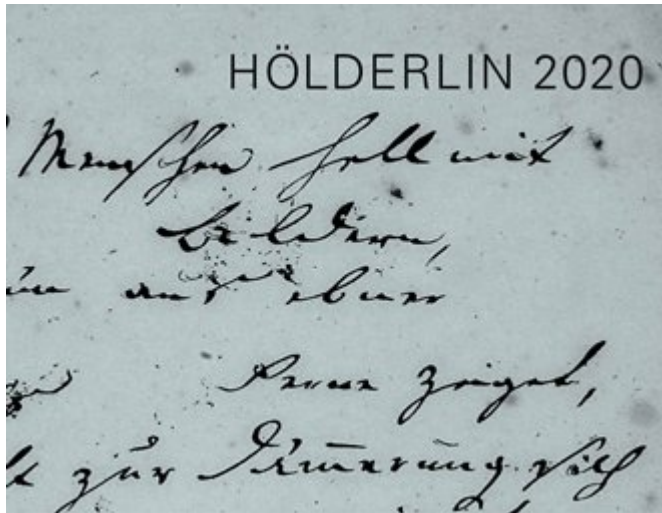 HÖLDERLIN 2020
Menschen hell mit
Bildern,
aus ebner
Ferne zeiget,
zur Däm̅erung sich